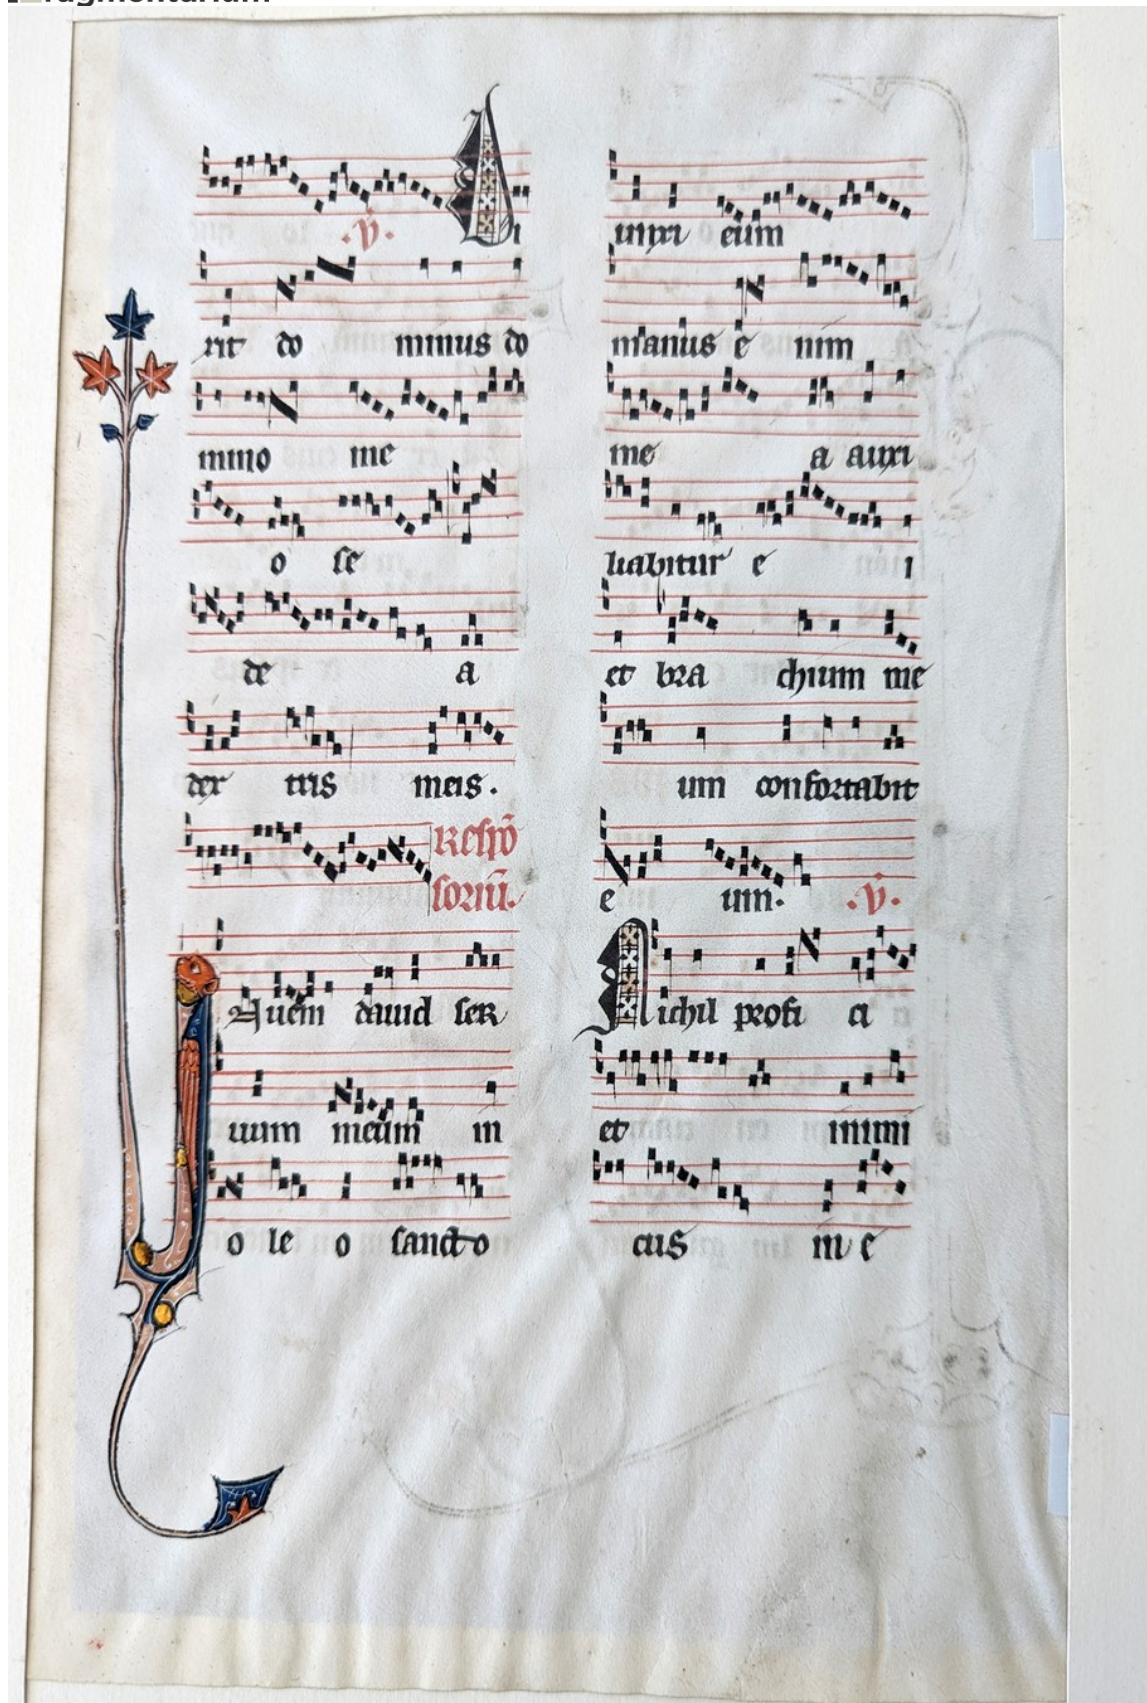 .v̄. Di
xit do minus do
mino me
o se
de a
dex tris meis.
Respō
soriū.
Inueni dauid ser
uum meum in
o le o sancto
unxi eum
manus e nim
me a auxi
liabitur e i
et bra chium me
um confortabit
e um. .v̄.
Nichil profi ci
et inimi
cus in e